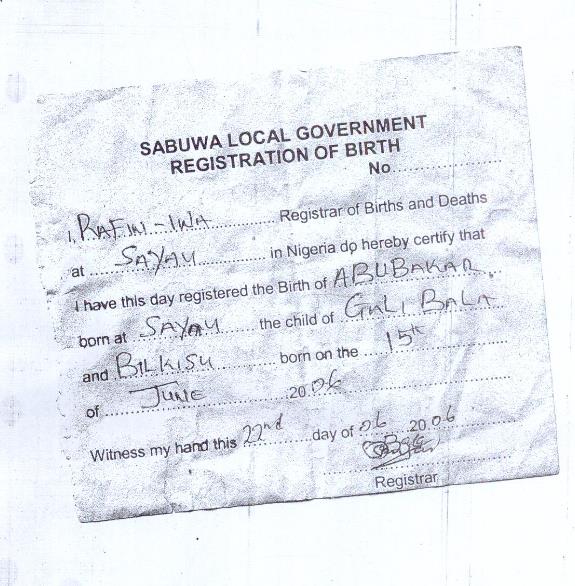 SABUWA LOCAL GOVERNMENT
REGISTRATION OF BIRTH
No..................
I, RAFIN-IWA ............ Registrar of Births and Deaths
at ..... SAYAU ............ in Nigeria do hereby certify that
I have this day registered the Birth of ABUBAKAR
born at SAYAU ...... the child of GULI BALA
and BILKISU ............ born on the ..... 15th
of ..... JUNE ............ 2006
Witness my hand this 22nd ........ day of 06 ..... 2006
Registrar